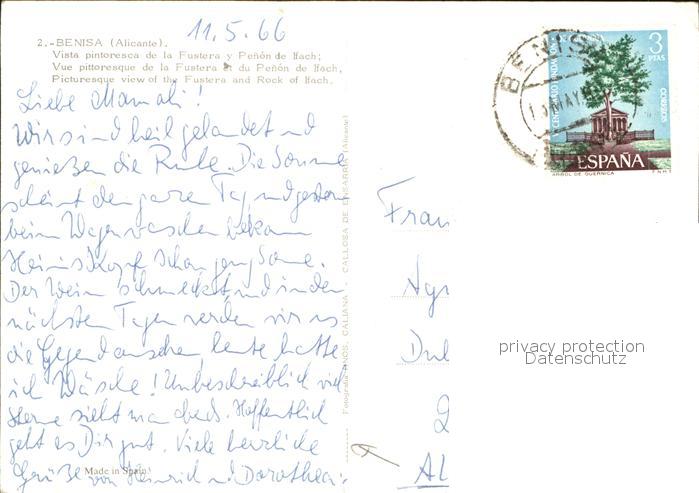 11.5.66
2.-BENISA (Alicante).
Vista pintoresca de la Fustera y Peñón de Ifach;
Vue pittoresque de la Fustera et du Peñón de Ifach,
Picturesque view of the Fustera and Rock of Ifach,
Liebe Mamali!
Wir sind heil gelandet und
genießen die Ruhe. Die Sonne
scheint den ganzen Tag und gestern
beim Wagenwaschen bekam
Heinis Kopf schon genug Sonne.
Der Wein schmeckt und in den
nächsten Tagen werden wir uns
die Gegend anschauen heute hatte
ich Wäsche! Unbeschreiblich viel
Sterne sieht man abends. Hoffentlich
geht es Dir gut. Viele herzliche
Grüße von Heinrich und Dorothea
Made in Spain
Fotografía HNOS. GALIANA - CALLOSA DE ENSARRIÁ (Alicante)
BENIS
MAY
CENTENARIO FUNDACION
3
PTAS
CORREOS
ESPAÑA
ARBOL DE GUERNICA
F.N.M.T.
Frau
privacy protection
Datenschutz